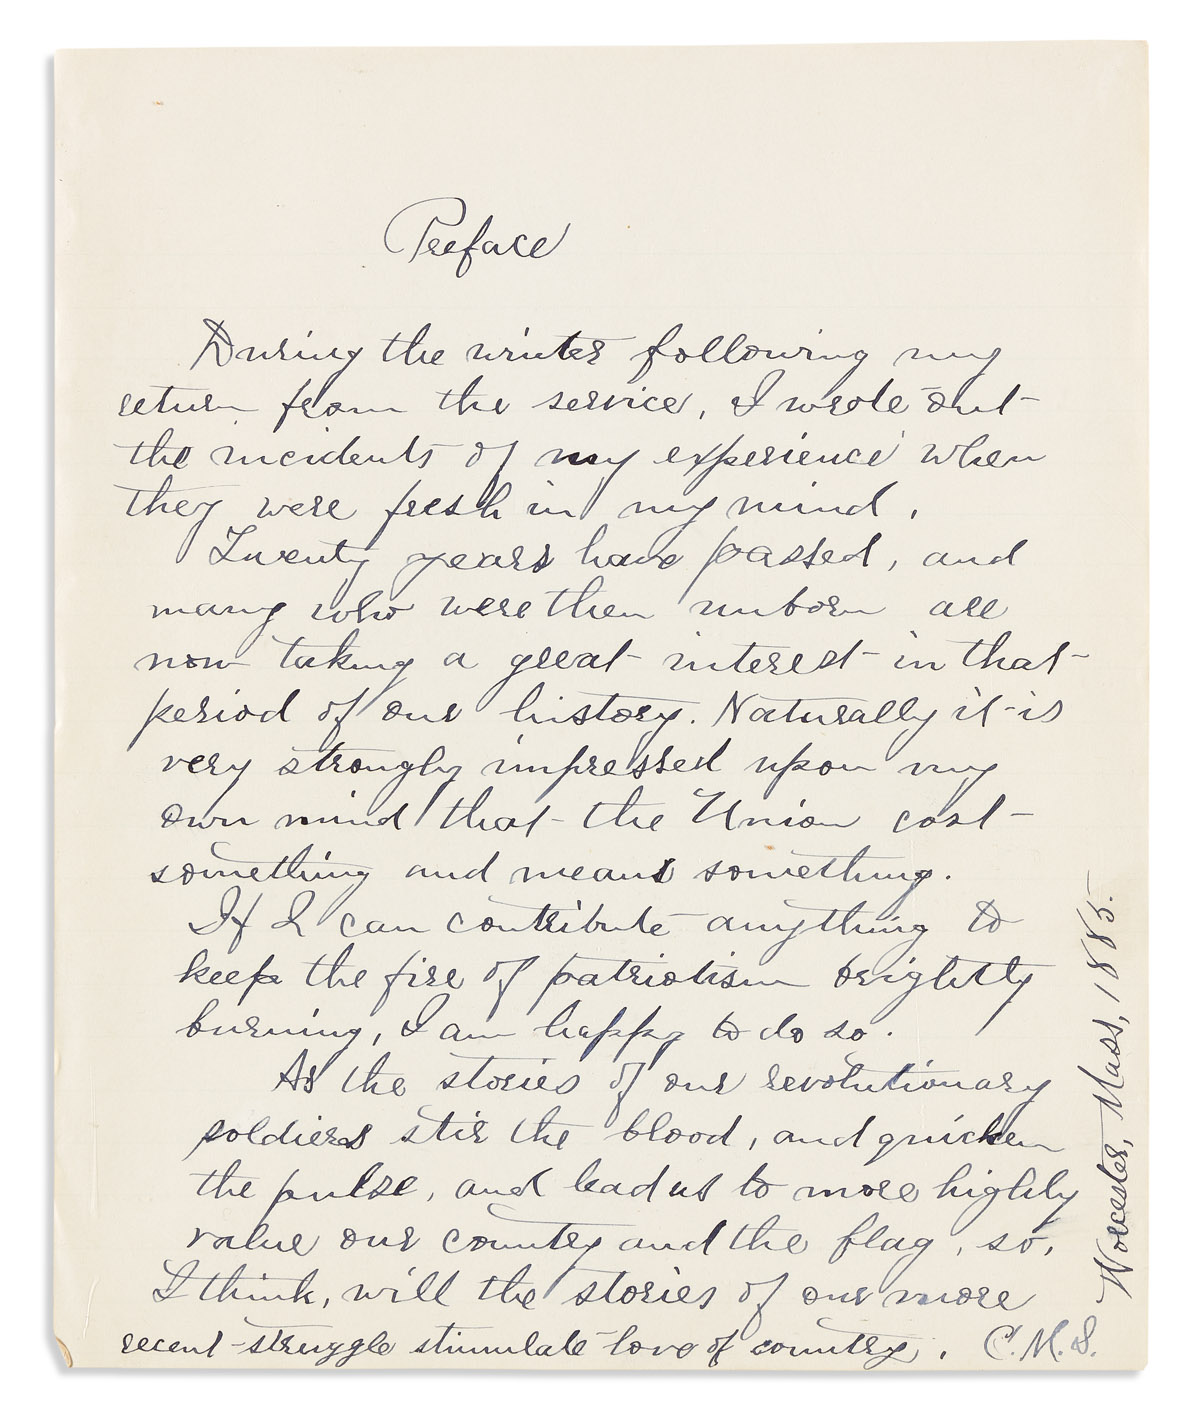 Preface
During the winter following my
return from the service, I wrote out
the incidents of my experience when
they were fresh in my mind.
Twenty years have passed, and
many who were then unborn are
now taking a great interest in that
period of our history. Naturally it is
very strongly impressed upon my
own mind that the Union cost
something and means something.
If I can contribute anything to
keep the fire of patriotism brightly
burning, I am happy to do so.
As the stories of our revolutionary
soldiers stir the blood, and quicken
the pulse, and lead us to more highly
value our country and the flag, so,
I think, will the stories of our more
recent struggle stimulate love of country. C. M. S.
Worcester, Mass, 1885.